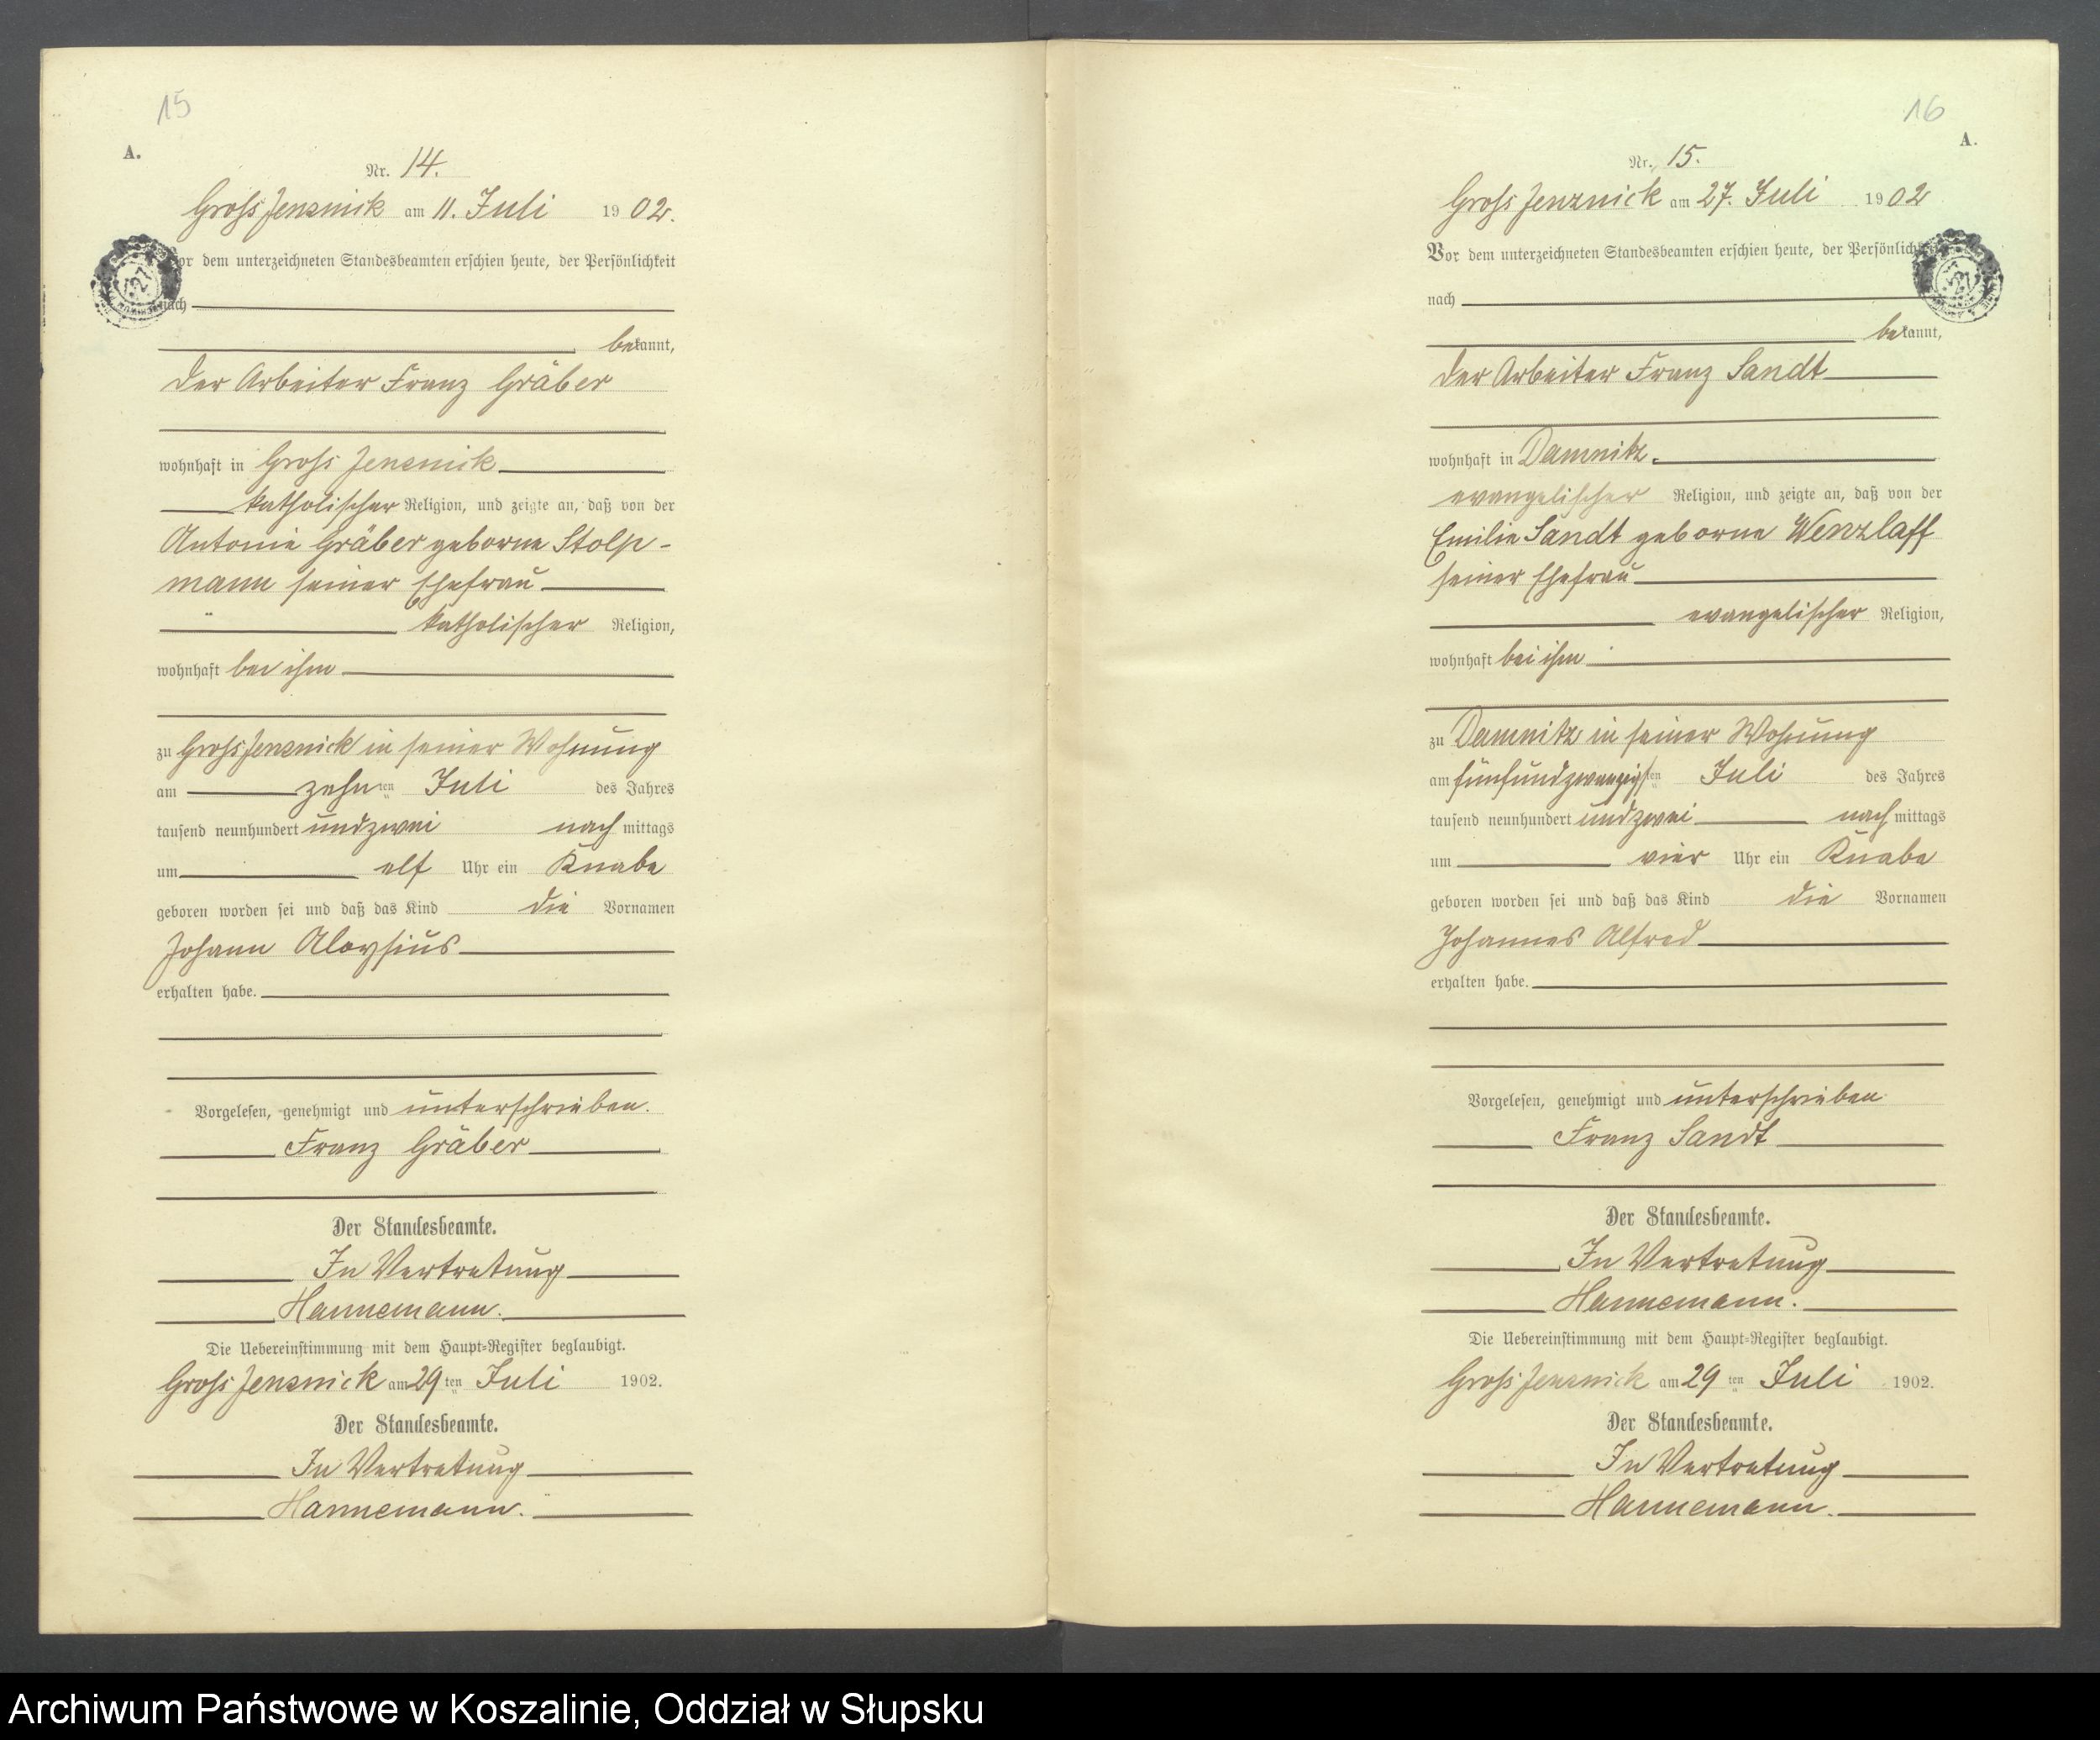 15
A.
Nr. 14.
Gross Jenznick am 11. Juli 1902.
Vor dem unterzeichneten Standesbeamten erschien heute, der Persönlichkeit
nach
bekannt,
der Arbeiter Franz Gräber
wohnhaft in Gross Jenznick
katholischer Religion, und zeigte an, daß von der
Antonie Gräber geborne Stolp-
mann seiner Ehefrau
katholischer Religion,
wohnhaft bei ihm
zu Gross Jenznick in seiner Wohnung
am zehnten Juli des Jahres
tausend neunhundert undzwei nachmittags
um elf Uhr ein Knabe
geboren worden sei und daß das Kind die Vornamen
Johann Aloysius
erhalten habe.
Vorgelesen, genehmigt und unterschrieben.
Franz Gräber
Der Standesbeamte.
In Vertretung
Hannemann.
Die Uebereinstimmung mit dem Haupt-Register beglaubigt.
Gross Jenznick am 29ten Juli 1902.
Der Standesbeamte.
In Vertretung
Hannemann.
16
A.
Nr. 15.
Gross Jenznick am 27. Juli 1902
Vor dem unterzeichneten Standesbeamten erschien heute, der Persönlichkeit
nach
bekannt,
der Arbeiter Franz Sandt
wohnhaft in Damnitz
evangelischer Religion, und zeigte an, daß von der
Emilie Sandt geborne Wenzlaff
seiner Ehefrau
evangelischer Religion,
wohnhaft bei ihm
zu Damnitz in seiner Wohnung
am fünfundzwanzigsten Juli des Jahres
tausend neunhundert undzwei nachmittags
um vier Uhr ein Knabe
geboren worden sei und daß das Kind die Vornamen
Johannes Alfred
erhalten habe.
Vorgelesen, genehmigt und unterschrieben
Franz Sandt
Der Standesbeamte.
In Vertretung
Hannemann.
Die Uebereinstimmung mit dem Haupt-Register beglaubigt.
Gross Jenznick am 29ten Juli 1902.
Der Standesbeamte.
In Vertretung
Hannemann.
Archiwum Państwowe w Koszalinie, Oddział w Słupsku